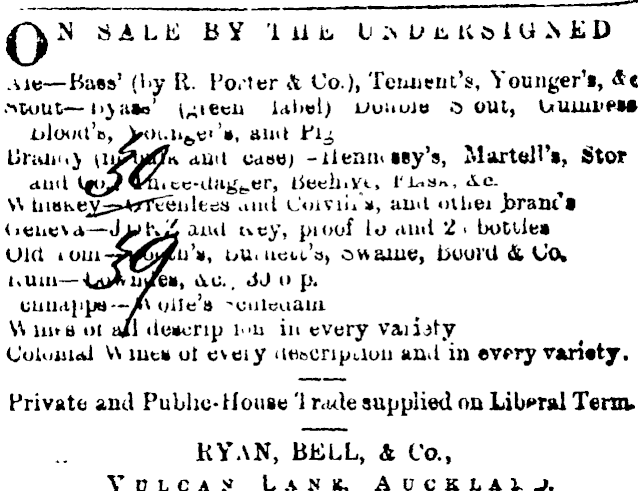 ON SALE BY THE UNDERSIGNED
Ale—Bass' (by R. Porter & Co.), Tennent's, Younger's, &c
Stout—Byass' (green label) Double Stout, Guinness
Blood's, Younger's, and Pig
Brandy (in bulk and case)—Hennessy's, Martell's, Stor
and Co., Three-dagger, Beehive, Flask, &c.
Whiskey—Greenlees and Colvill's, and other brands
Geneva—JDKZ and Key, proof 15 and 2 bottles
Old Tom—Booth's, Burnett's, Swaine, Boord & Co.
Rum—Lowndes, &c., 30 o p.
chnapps—Wolfe's Schiedam
Wines of all description in every variety
Colonial Wines of every description and in every variety.
Private and Public-House Trade supplied on Liberal Term.
RYAN, BELL, & Co.,
VULCAN LANE, AUCKLAND.
30
39